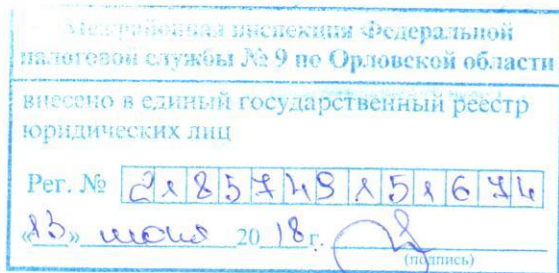 Межрайонная инспекция Федеральной
налоговой службы № 9 по Орловской области
внесено в единый государственный реестр
юридических лиц
Рег. № 2185749151674
«13» июня 2018г.
(подпись)